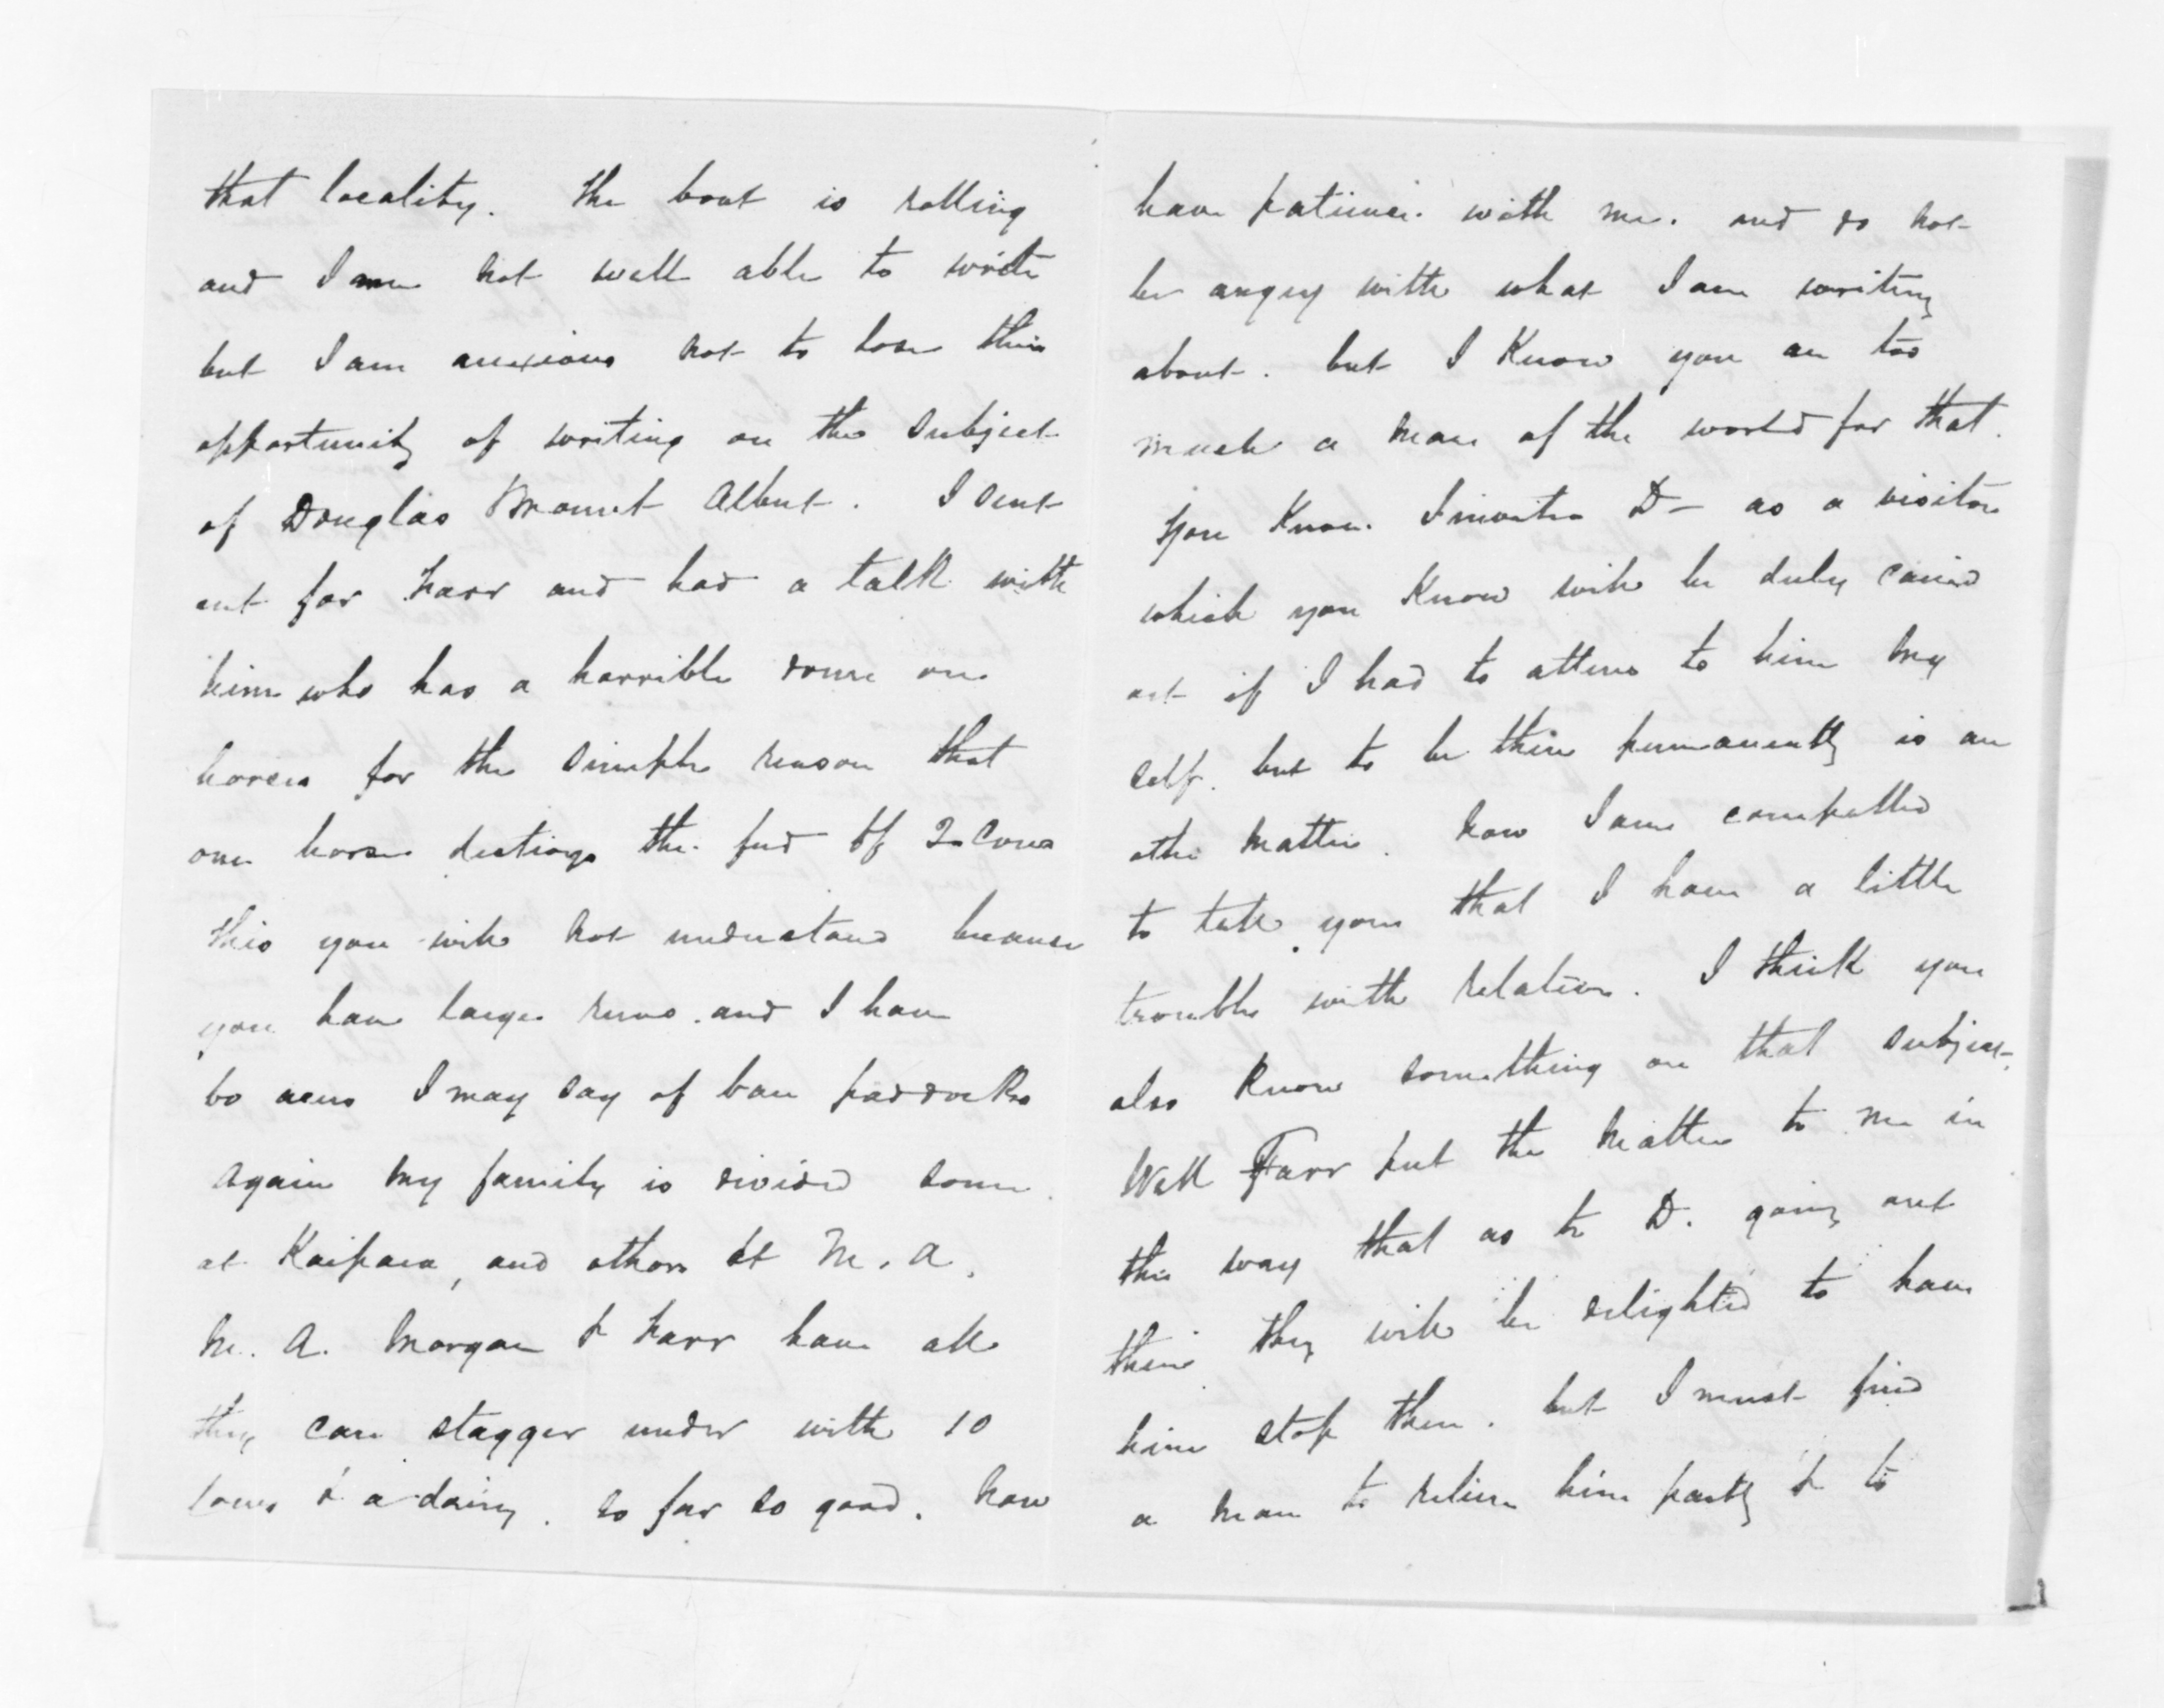 that locality. The boat is rolling
and I am not well able to write
but I am anxious not to lose this
opportunity of writing on the subject
of Douglas Mount Albert. I sent
out for Farr and had a talk with
him who has a horrible down on
horses for the simple reason that
one horse destroys the feed of 2 Cows
this you will not understand because
you have large runs. and I have
60 acres I may say of bare paddocks
Again my family is divided some
at Kaipara, and others at M. A.
M. A. Morgan & Farr have all
they can stagger under with 10
cows & a dairy. So far so good. Now
have patience with me. and do not
be angry with what I am writing
about. but I Know you are too
much a man of the world for that.
You Know I invited D - as a visitor
which you Know will be duly carried
out if I had to attend to him my
self. but to be there permanently is an
other matter. Now I am compelled
to tell you that I have a little
trouble with relations. I think you
also Know something on that subject.
Well Farr put the matter to me in
this way that as to D. going out
there they will be delighted to have
him stop there. but I must find
a man to relieve him partly & to